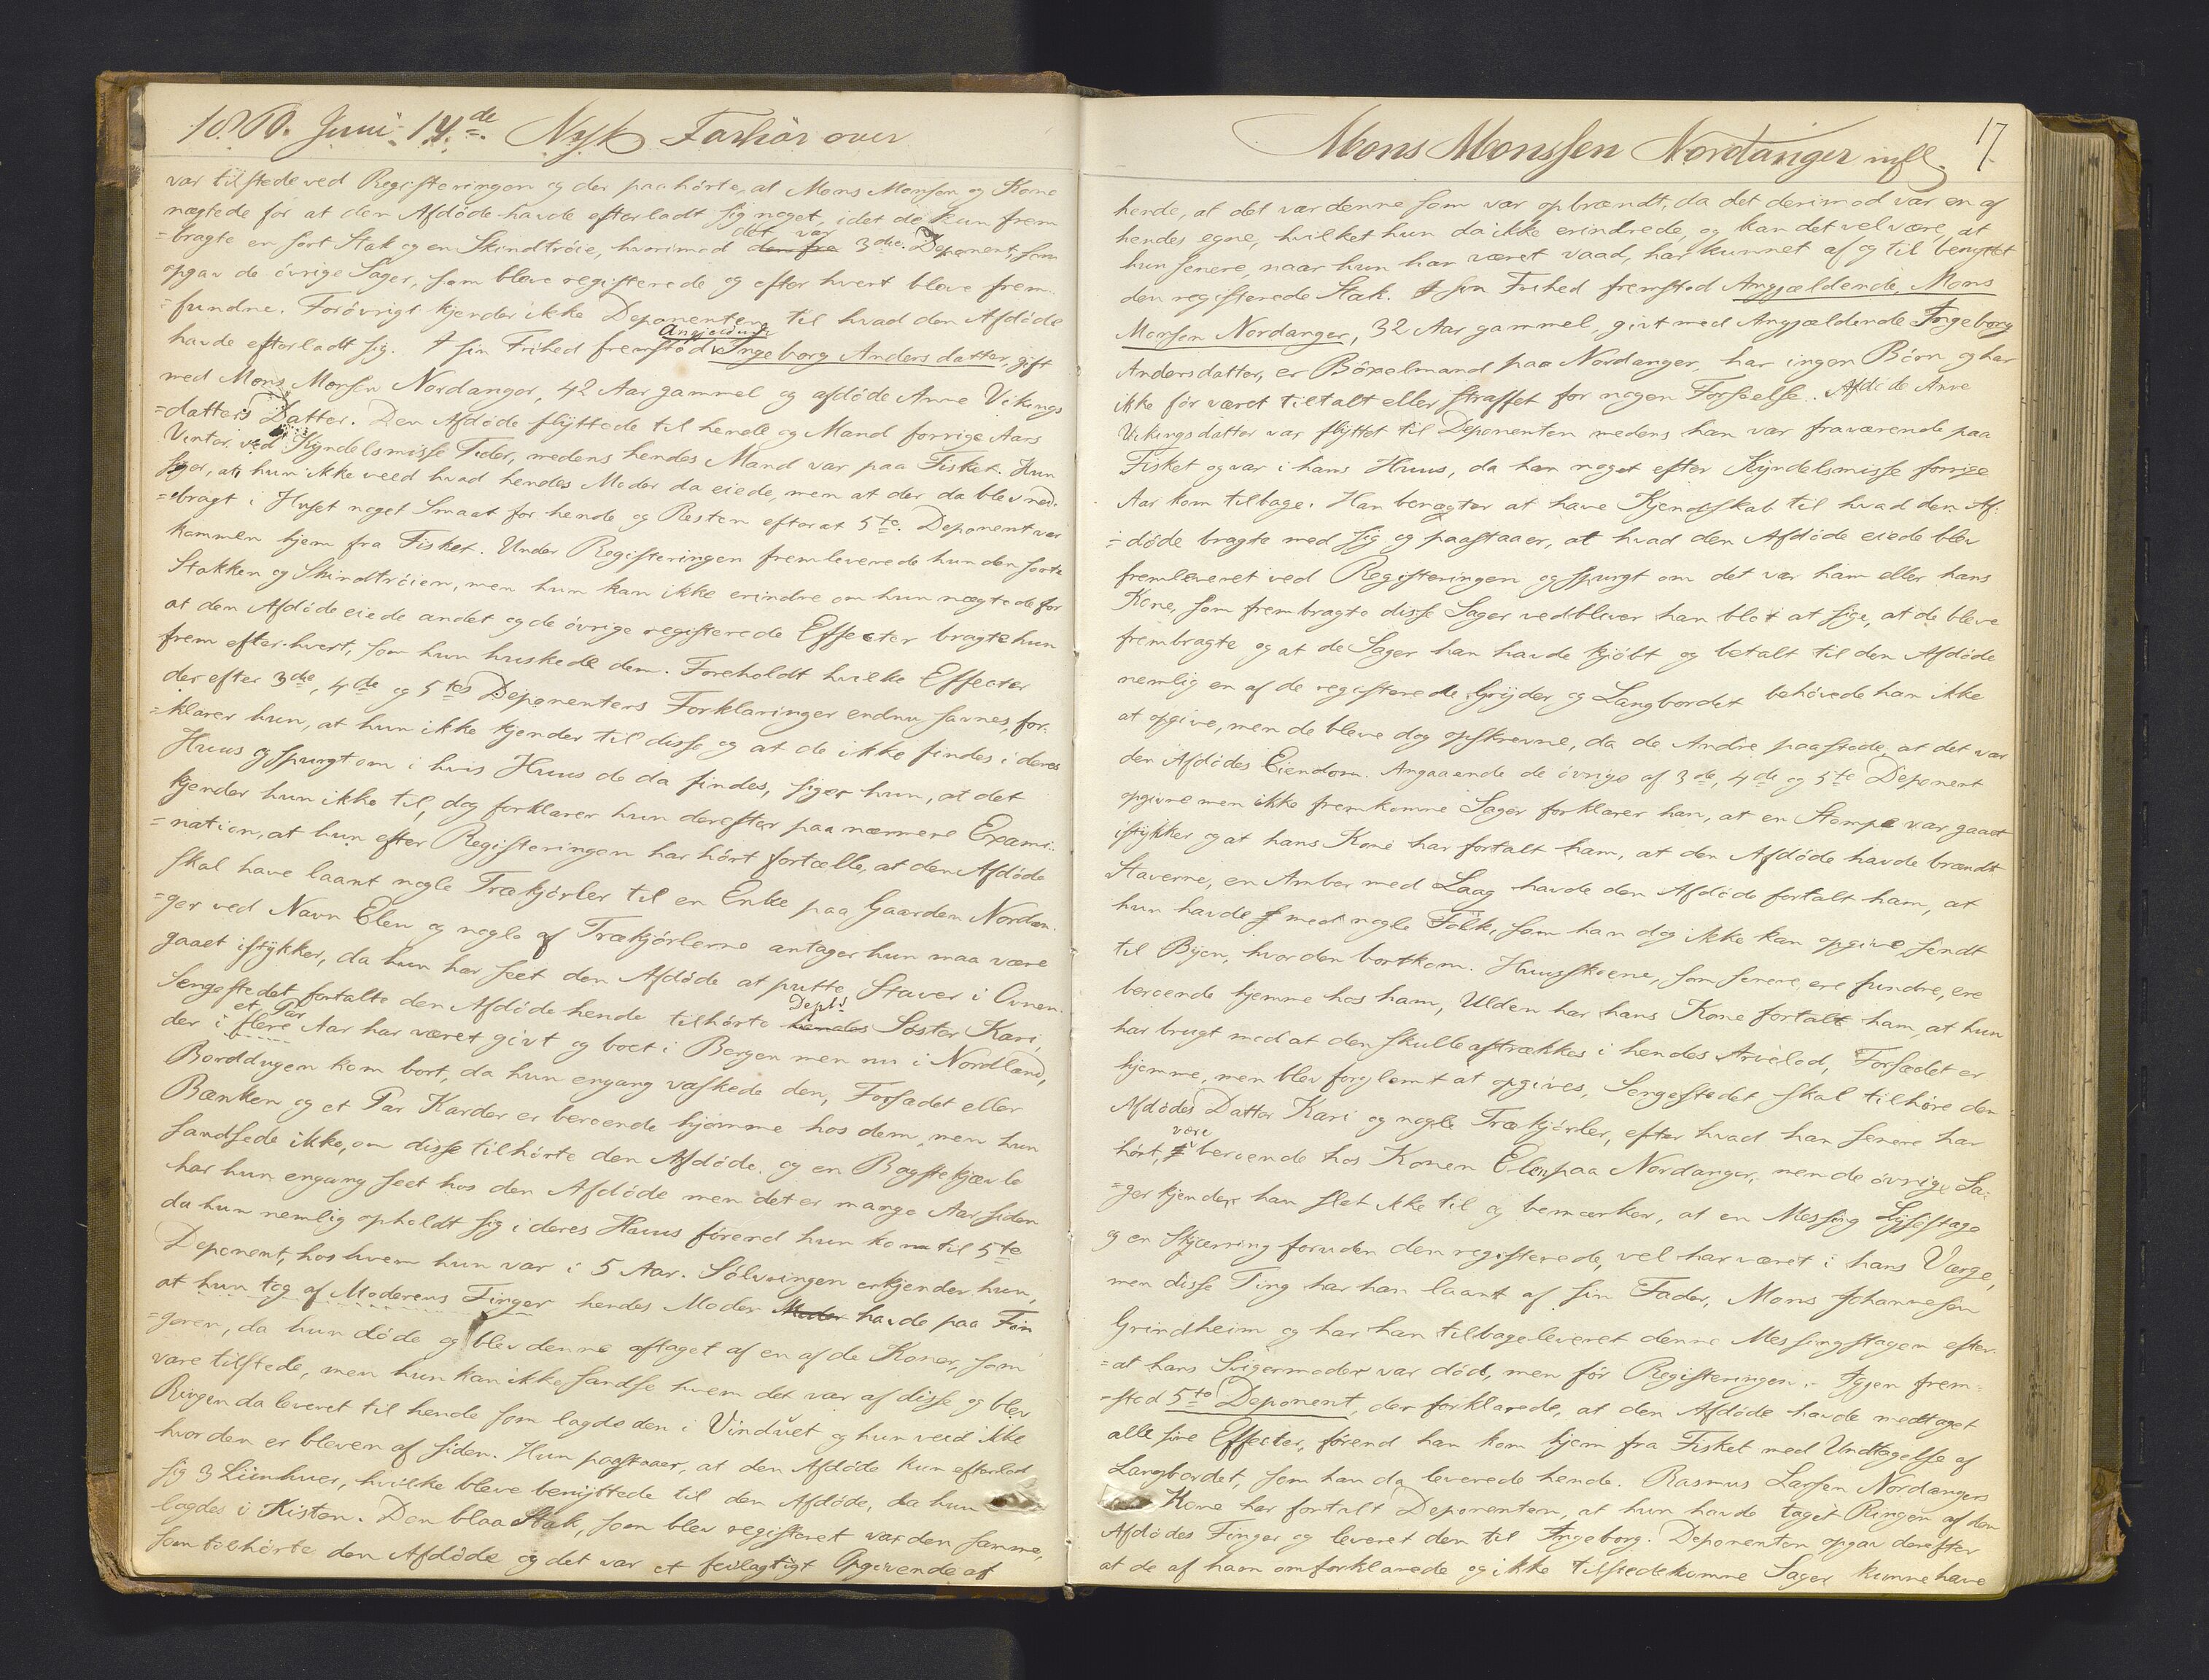 1860. Juni 14.de Nysk Forhör over
var tilstede ved Registeringen og der paahörte, at Mons Monsen og Kone
nægtede for at den Afdöde havde efterladt sig noget, idet de kun frem
=bragte en sort Stak og en Skindtröie, hvorimod det var 3die Deponent, som
opgav de övrige Sager, som bleve registerede og efter hvert bleve frem-
=fundne. Forövrigt kjender ikke Deponenten til hvad den Afdöde
havde efterladt sig. I sin Frihed fremstod Angjeldende Ingeborg Andersdatter, gift
med Mons Monsen Nordanger, 42 Aar gammel og afdöde Anne Vikings
=datters Datter. Den Afdöde flyttede til hende og Mand forrige Aars
Vinter ved Kyndelsmisse Tider, medens hendes Mand var paa Fisket. Hun
siger, at hun ikke veed hvad hendes Moder da eiede, men at der da blev ned-
=bragt i Huset noget Smaat for hende og Resten efterat 5te Deponent var
kommen hjem fra Fisket. Under Registeringen fremleverede hun den sorte
Stakken og Skindtröien, men hun kan ikke erindre om hun nægtede for
at den Afdöde eiede andet og de övrige registerede Effecter bragte hun
frem efterhvert, som hun huskede dem. Foreholdt hvilke Effecter
der efter 3die, 4de og 5tes Deponenters Forklaringer endnu savnes, for-
=klarer hun, at hun ikke kjender til disse og at de ikke findes i deres
Huus og spurgt om i hvis Huus de da findes, siger hun, at det
kjender hun ikke til, dog forklarer hun derefter paa nærmere Exami-
=nation, at hun efter Registeringen har hört fortælle, at den Afdöde
skal have laant nogle Trækjörler til en Enke paa Gaarden Nordan-
=ger ved Navn Elen og nogle af Trækjörlerne antager hun maa være
gaaet istykker, da hun har seet den Afdöde at putte Staver i Ovnen.
Sengestedet fortalte den Afdöde hende tilhörte Depts Söster Kari,
der i et Par Aar har været givt og boet i Bergen men nu i Nordland,
Borddugen kom bort, da hun engang vaskede den, Forsædet eller
Bænken og et Par Karder er beroende hjemme hos dem, men hun
sandsede ikke, om disse tilhörte den Afdöde. og en Bagstekjævle
har hun engang seet hos den Afdöde men det er mange Aar siden
da hun nemlig opholdt sig i deres Huus förend hun kom til 5te
Deponent, hos hvem hun var i 5 Aar. Sölvringen erkjender hun,
at hun tog af Moderens Finger hendes Moder havde paa Fin
=geren, da hun döde og blev denne aftaget af en af de Koner, som
vare tilstede, men hun kan ikke sandse hvem det var af disse og blev
Ringen da leveret til hende som lagde den i Vinduet og hun veed ikke
hvor den er bleven af siden. Hun paastaaer, at den Afdöde kun efterlod
sig 3 Liinhuer, hvilke bleve benyttede til den Afdöde, da hun
lagdes i Kisten. Den blaa Stak, som blev registeret var den samme,
som tilhörte den Afdöde og det var et feilagtigt Opgivende af
Mons Monssen Nordanger mfl. 17
hende, at det var denne som var opbrændt, da det derimod var en af
hendes egne, hvilket hun da ikke erindrede, og kan det vel være, at
hun senere, naar hun har været vaad, har kunnet af og til benyttet
den registerede Stak. I sin Frihed fremstod Angjældende, Mons
Monsen Nordanger, 32 Aar gammel, givt med Angjældende Ingeborg
Andersdatter, er Böxelmand paa Nordanger, har ingen Börn og har
ikke för været tiltalt eller straffet for nogen Forseelse. Afdöde Anne
Vikingsdatter var flyttet til Deponenten medens han var fraværende paa
Fisket og var i hans Huus, da han noget efter Kyndelsmisse forrige
Aar kom tilbage. Han benægter at have Kjendskab til hvad den Af-
=döde bragte med sig og paastaaer, at hvad den Afdöde eiede blev
fremleveret ved Registeringen og spurgt om det var ham eller hans
Kone, som frembragte disse Sager vedbliver han blot at sige, at de bleve
frembragte og at de Sager han havde kjöbt og betalt til den Afdöde
nemlig en af de registerede Gryder og Langbordet behövede han ikke
at opgive, men de bleve dog opskrevne, da de Andre paastode, at det var
den Afdödes Eiendom. Angaaende de övrige af 3die, 4de og 5te Deponent
opgivne men ikke fremkomne Sager forklarer han, at en Stampe var gaaet
istykker og at hans Kone har fortalt ham, at den Afdöde havde brændt
Staverne, en Amber med Laag havde den Afdöde fortalt ham, at
hun havde med nogle Folk, som han dog ikke kan opgive, sendt
til Byen, hvor den bortkom. Huusskoene, som senere ere fundne, ere
beroende hjemme hos ham, Ulden har hans Kone fortalt ham, at hun
har brugt mod at den skulle aftrækkes i hendes Arvelod, Forsædet er
hjemme, men blev forglemt at opgives, Sengestedet skal tilhöre den
Afdödes Datter Kari og nogle Trækjörler, efter hvad han senere har
hört, være beroende hos Konen Elen paa Nordanger, men de övrige Sa-
=ger kjender han slet ikke til og bemærker, at en Messing Lysestage
og en Skjærring foruden den registerede, vel har været i hans Værge,
men disse Ting har han laant af sin Fader, Mons Johannesen
Grindheim og har han tilbageleveret denne Messingstagen efter-
=at hans Svigermoder var död, men för Registeringen. Igjen frem-
=stod 5te Deponent, der forklarede, at den Afdöde havde medtaget
alle sine Effecter, förend han kom hjem fra Fisket med Undtagelse af
Langbordet, som han da leverede hende. Rasmus Larsen Nordangers
Kone har fortalt Deponenten, at hun havde taget Ringen af den
Afdödes Finger og leveret den til Ingeborg. Deponenten opgav derefter
at de af ham omforklarede og ikke tilstedekomne Sager kunne have